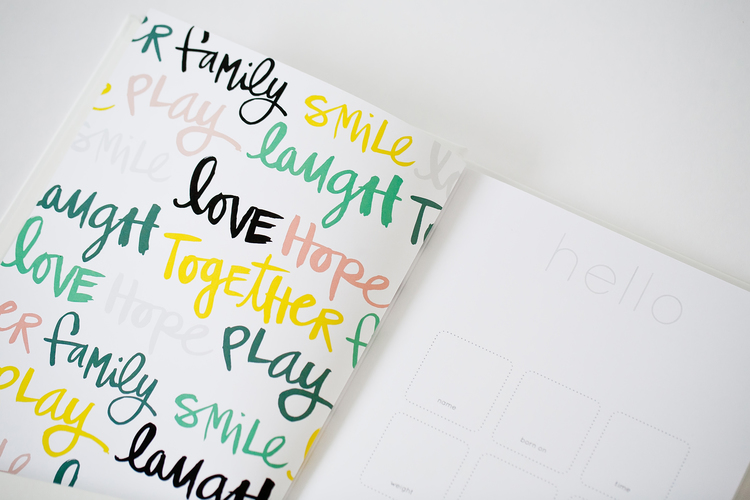 ER family
Play smile
smile laugh
love To
augh Hope
Together
love Hope
ER family Play
Play smile
laugh
hello
name born on time
weight